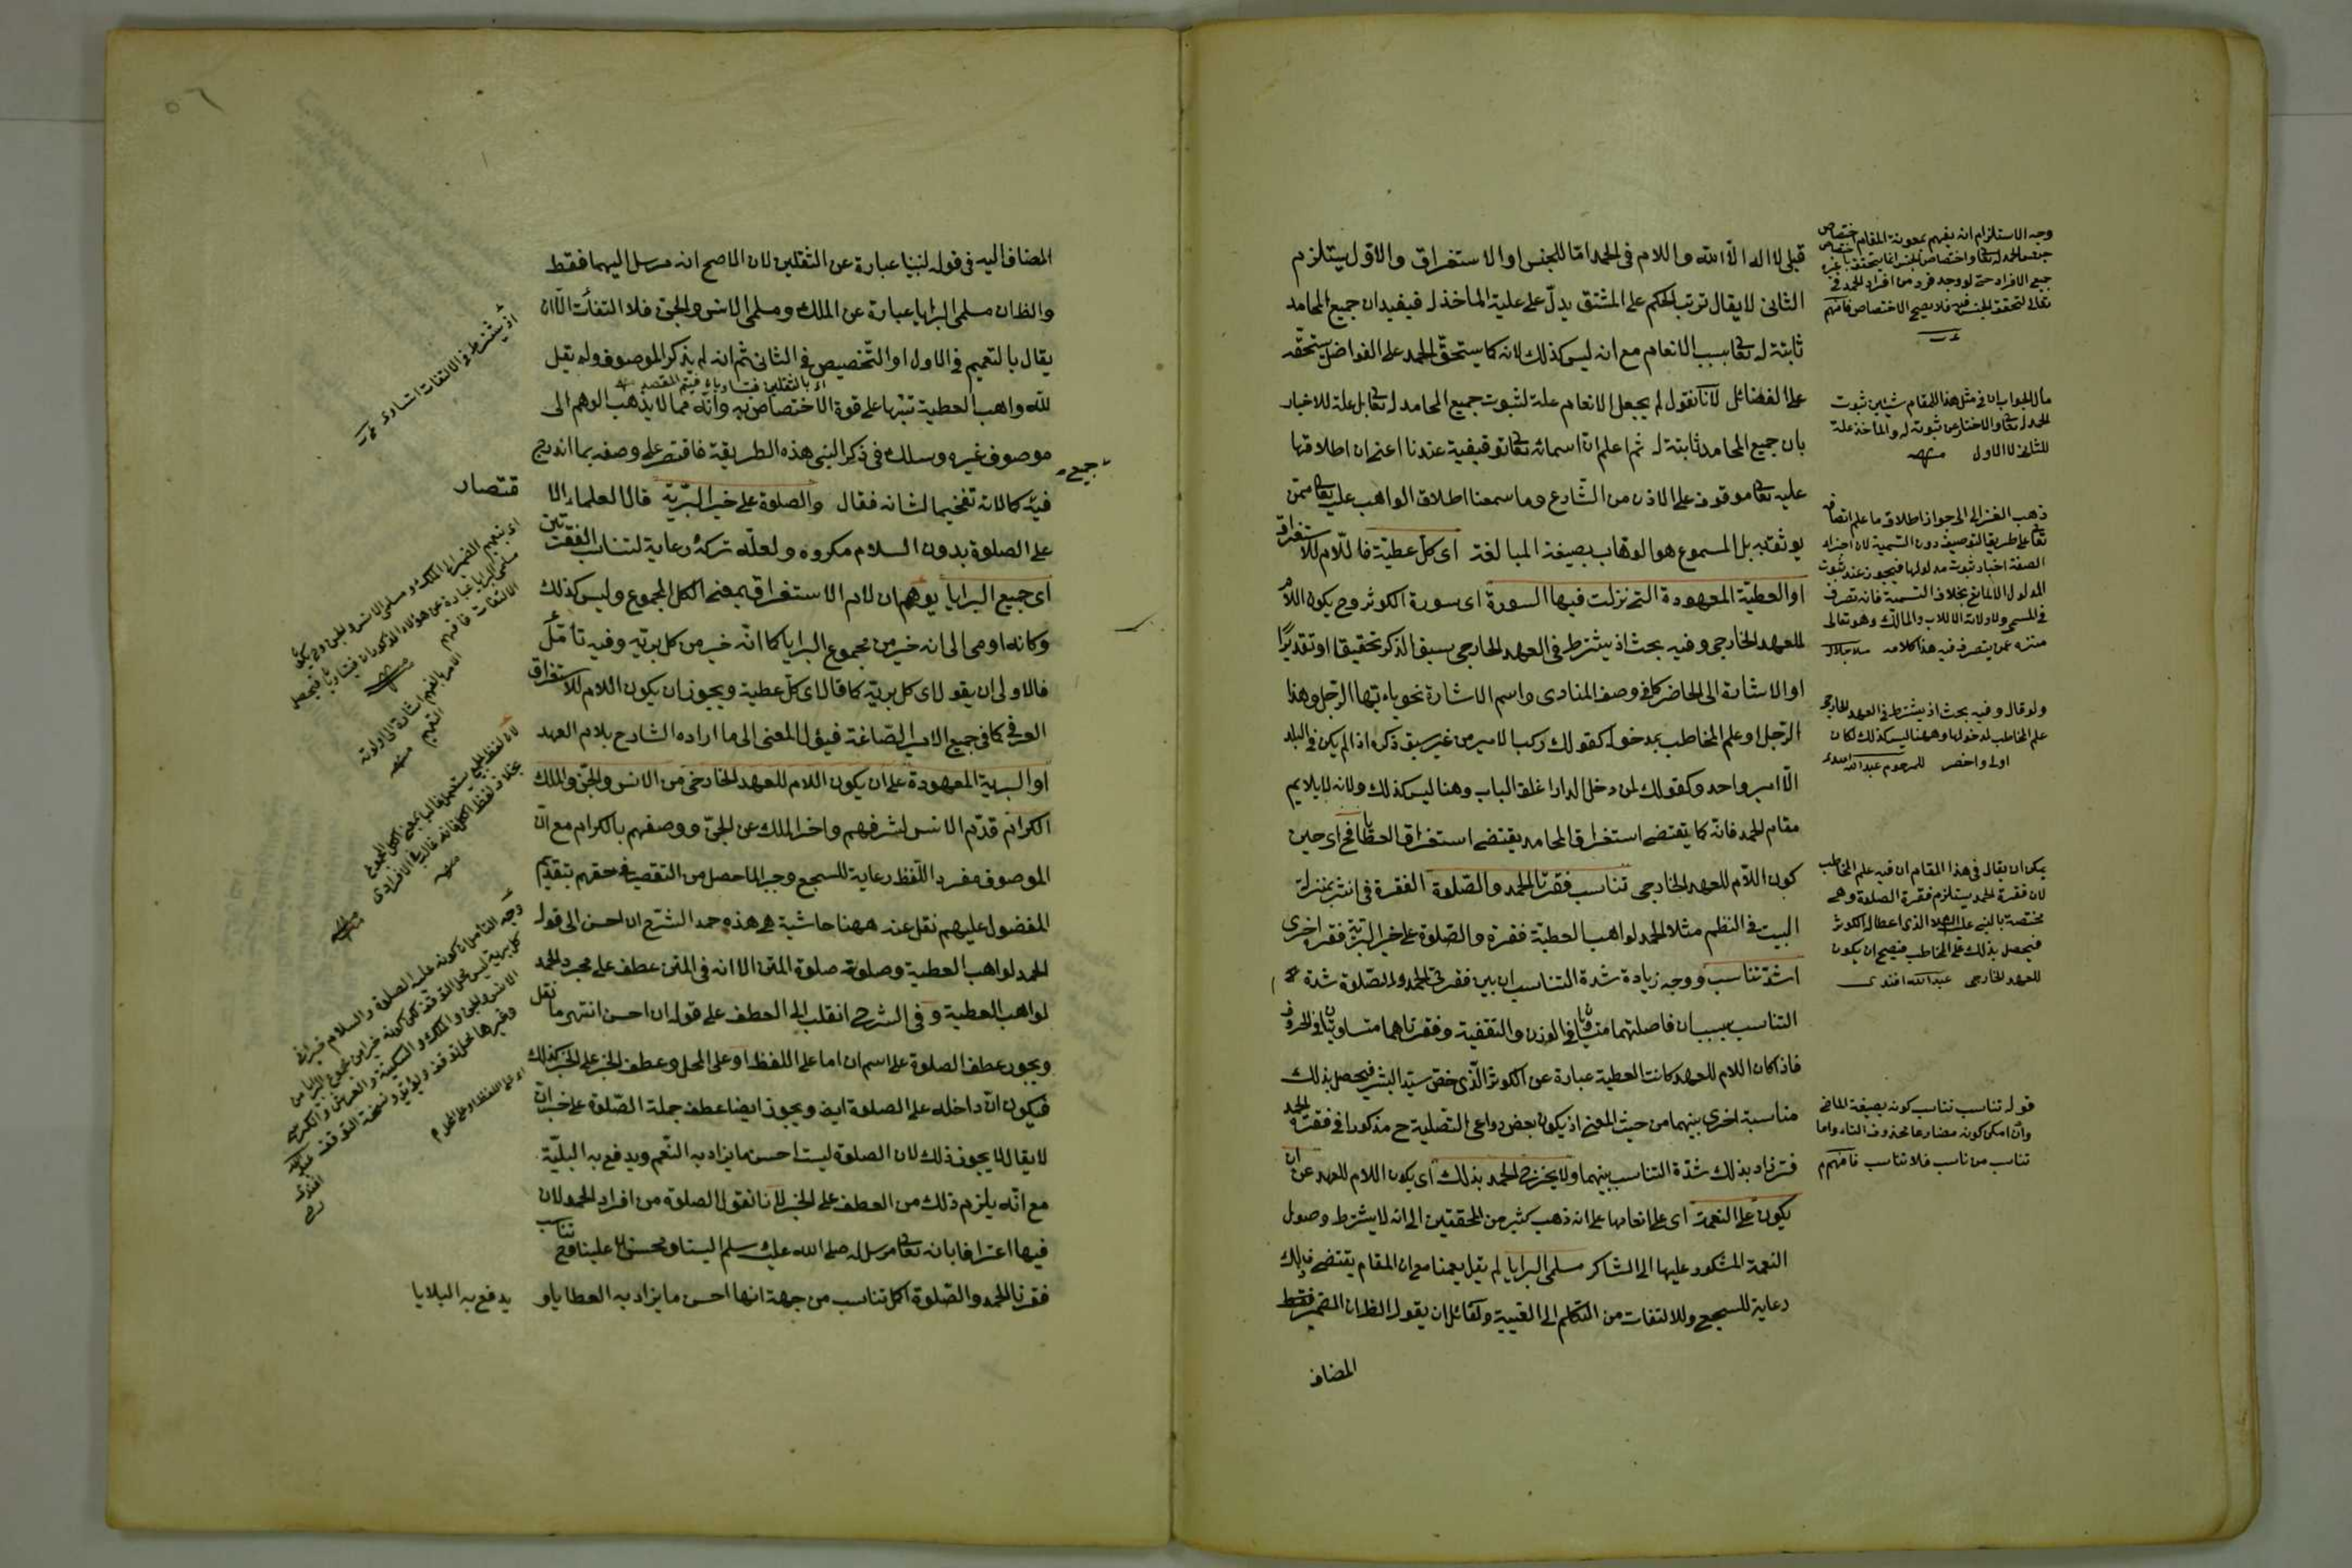 قبلى لا اله الا الله واللام فى الحمد اما للجنس او الاستغراق والاول يستلزم
الثانى لا يقال ترتب الحكم على المشتق يدل على علية المأخذ له فيفيد ان جميع المحامد
ثابتة له تعا بسبب الانعام مع انه ليس كذلك لانه كما يستحق الحمد على الفواضل يستحقه
على الفضائل لانا نقول لم يجعل الانعام علة لثبوت جميع المحامد له تعا بل علة للاخبار
بان جميع المحامد ثابتة له ثم اعلم ان اسمائه تعا توقيفية عندنا اعنى ان اطلاقها
عليه تعا موقوف على الاذن من الشارع وما سمعنا اطلاق الواهب عليه تعا ممن
يوثق به بل المسموع هو الوهاب بصيغة المبالغة اى كل عطية فاللام للاستغراق
او العطية المعهودة التى نزلت فيها السورة اى سورة الكوثر وح يكون اللام
للعهد الخارجى وفيه بحث اذ يشترط فى العهد الخارجى سبق الذكر تحقيقا او تقديرا
او الاشارة الى الحاضر كما فى وصف المنادى واسم الاشارة نحو يا ايها الرجل وهذا
الرجل او علم المخاطب بمدخوله كقولك ركب الامير من غير سبق ذكره اذا لم يكن فى البلد
الا امير واحد وكقولك لمن دخل الدار اغلق الباب وهنا ليس كذلك ولانه لا يلايم
مقام الحمد فانه كما يقتضى استغراق المحامد يقتضى استغراق العطايا فح اى حين
كون اللام للعهد الخارجى تناسب فقرتا الحمد والصلوة الفقرة فى النثر بمنزلة
البيت فى النظم مثلا الحمد لواهب العطية فقرة والصلوة على خير البرية فقرة اخرى
اشد تناسب ووجه زيادة شدة التناسب ان بين فقرتى الحمد والصلوة شدة
التناسب بسبب ان فاصلتهما متساويتان فى الوزن والتقفية وفقرتاهما متساويتان فى الحروف
فاذا كان اللام للعهد كانت العطية عبارة عن الكوثر الذى خص سيد البشر فيحصل بذلك
مناسبة اخرى بينهما من حيث المعنى اذ يكون بعض دواعى التصلية ح مذكورا فى فقرة الحمد
فتزاد بذلك شدة التناسب بينهما ولا يخرج الحمد بذلك اى بكون اللام للعهد عن ان
يكون على النعمة اى على انعامها على انه ذهب كثير من المحققين الى انه لا يشترط وصول
النعمة المشكور عليها الى الشاكر مسلمى البرايا لم يقل يعمنا مع ان المقام يقتضى ذلك
رعاية للسجع وللالتفات من التكلم الى الغيبة ولقائل ان يقول الظ ان الضمير فقط
المضاف
وجه الاستلزام انه يفهم بمعونة المقام اختصاص
جنس الحمد له تعا واختصاص الجنس انما يتحقق باختصاص
جميع الافراد حتى لو وجد فرد من افراد الحمد فى غيره
تعالى لتحقق الجنس فيه فلا يصح الاختصاص فافهم
مآل الجواب ان فى مثل هذا المقام شيئين ثبوت
الحمد له تعا والاخبار عن ثبوته له والمأخذ علة
للثانى لا الاول منهه
ذهب الغزالى الى جواز اطلاق ما علم اتصافه
تعا على طريق التوصيف دون التسمية لان اجراء
الصفة اخبار بثبوت مدلولها فيجوز عند ثبوت
المدلول الا لمانع بخلاف التسمية فانه تصرف
فى المسمى ولا ولاية الا للاب والمالك وهو تعالى
منزه عمن يتصرف فيه هذا كلامه ملا جلال
ولو قال وفيه بحث اذ يشترط فى العهد الخارجى
علم المخاطب لمدخولها وههنا ليس كذلك لكان
اولى واخصر للمرحوم عبد الله افندى
يمكن ان يقال فى هذا المقام ان فيه علم المخاطب
لان فقرة الحمد يستلزم فقرة الصلوة وهى
مختصة بالنبى عليه السلام الذى اعطا له الكوثر
فيحصل بذلك علم المخاطب فيصح ان يكون
للعهد الخارجى عبد الله افندى
قوله تناسب تناسب كونه بصيغة الماضى
وان امكن كونه مضارعا محذوف التاء واما
تناسب من ناسب فلا تناسب فافهم م
٥٦
المضاف اليه فى قوله لنبينا عبارة عن الثقلين لان الاصح انه مرسل اليهما فقط
والظ ان مسلمى البرايا عبارة عن الملك ومسلمى الانس والجن فلا التفات الا ان
يقال بالتعميم فى الاول او التخصيص فى الثانى ثم انه لم يذكر الموصوف ولم يقل
اى بالثقلين فتساويا فيتم المقصد منه
لله واهب العطية تنبيها على قوة الاختصاص به وانه مما لا يذهب الوهم الى
موصوف غيره وسلك فى ذكر النبى هذه الطريقة فاقتصر على وصفه بما اندرج
جميع
فيه كمالاته تفخيما لشانه فقال والصلوة على خير البرية قال العلماء الا
قتصار
على الصلوة بدون السلام مكروه ولعله تركه رعاية لتناسب الفقرتين
اى جميع البرايا يوهم ان لام الاستغراق بمعنى الكل المجموع وليس كذلك
وكانه اومى الى انه خير من مجموع البرايا كما انه خير من كل برية وفيه تأمل
فالاولى ان يقول اى كل برية كما قال اى كل عطية ويجوز ان يكون اللام للاستغراق
العرفى كما فى جميع الامير الصاغة فيؤل المعنى الى ما اراده الشارح بلام العهد
او البرية المعهودة على ان يكون اللام للعهد الخارجى من الانس والجن والملك
الكرام قدم الانس لشرفهم واخر الملك عن الجن ووصفهم بالكرام مع ان
الموصوف مفرد اللفظ رعاية للسجع وجبرا لما حصل من التقصير فى حقهم بتقديم
المفضول عليهم نقل عنه ههنا حاشية هى هذه حمد الشرح ان احسن الى قوله
الحمد لواهب العطية وصلوته صلوة المتن الا انه فى المتن عطف على مجرد الحمد
لواهب العطية وفى الشرح انقلب الى العطف على قوله ان احسن انتهى ما نقل
ويجوز عطف الصلوة على اسم ان اما على اللفظ او على المحل وعطف الخبر على الخبر كذلك
فيكون ان داخله على الصلوة ايض ويجوز ايضا عطف جملة الصلوة على خبر ان
لا يقال لا يجوز ذلك لان الصلوة ليست احسن ما يزاد به النعم ويدفع به البلية
مع انه يلزم ذلك من العطف على الخبر لانا نقول الصلوة من افراد الحمد لان
فيها اعترافا بانه تعا مرسل له صلى الله عليه وسلم الينا ومحسن له علينا وح تناسب
فقرتا الحمد والصلوة اكمل تناسب من جهة انها احسن ما يزاد به العطايا و
يدفع به البلايا
اذ يشترط فى الالتفات اتساوى
اى بتعميم الضمير الى الملك ومسلمى الانس والجن وح يكون
مسلمى البرايا عبارة عن هؤلاء المذكورات فيتساويان فيحصل
الالتفات فافهم منهه
الامر بالفهم اشارة الى اولوية
التعميم منهه
لان لفظ الجميع يستعمل غالبا بمعنى الكل المجموع
بخلاف لفظ الكل فانه غالب فى الافرادى
منهه
وجه التأمل ان كونه عليه الصلوة والسلام خيرا من
كل برية ليس محل التوقف لكن كونه خيرا من مجموع البرايا من
الانس والجن والملك والسكينة والعرش والكرسى
وغيرها محل توقف
اى على اللفظ او على المحل م